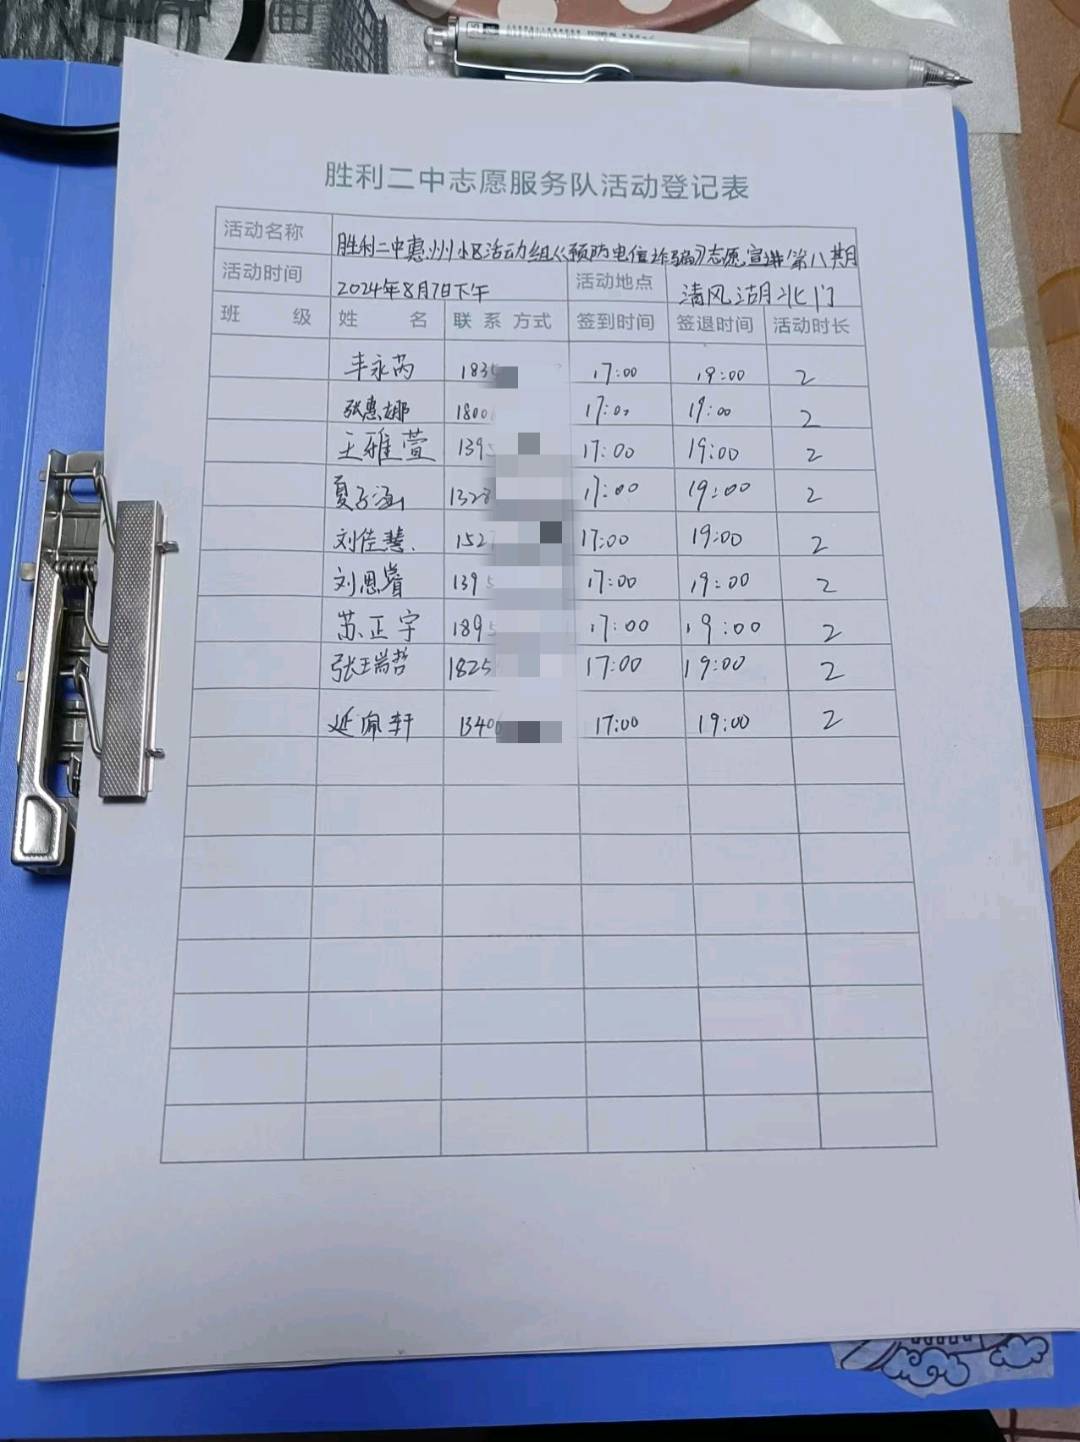 胜利二中志愿服务队活动登记表
活动名称 胜利二中惠州小区活动组《预防电信诈骗》志愿宣讲第八期
活动时间 2024年8月7日下午 活动地点 清风湖北门
班 级 姓 名 联系方式 签到时间 签退时间 活动时长
丰永芮 183 17:00 19:00 2
张惠娜 1800 17:00 19:00 2
王雅萱 1395 17:00 19:00 2
夏子涵 1328 17:00 19:00 2
刘佳慧 1527 17:00 19:00 2
刘恩睿 1395 17:00 19:00 2
苏正宇 1895 17:00 19:00 2
张瑞哲 1825 17:00 19:00 2
延佩轩 1340 17:00 19:00 2